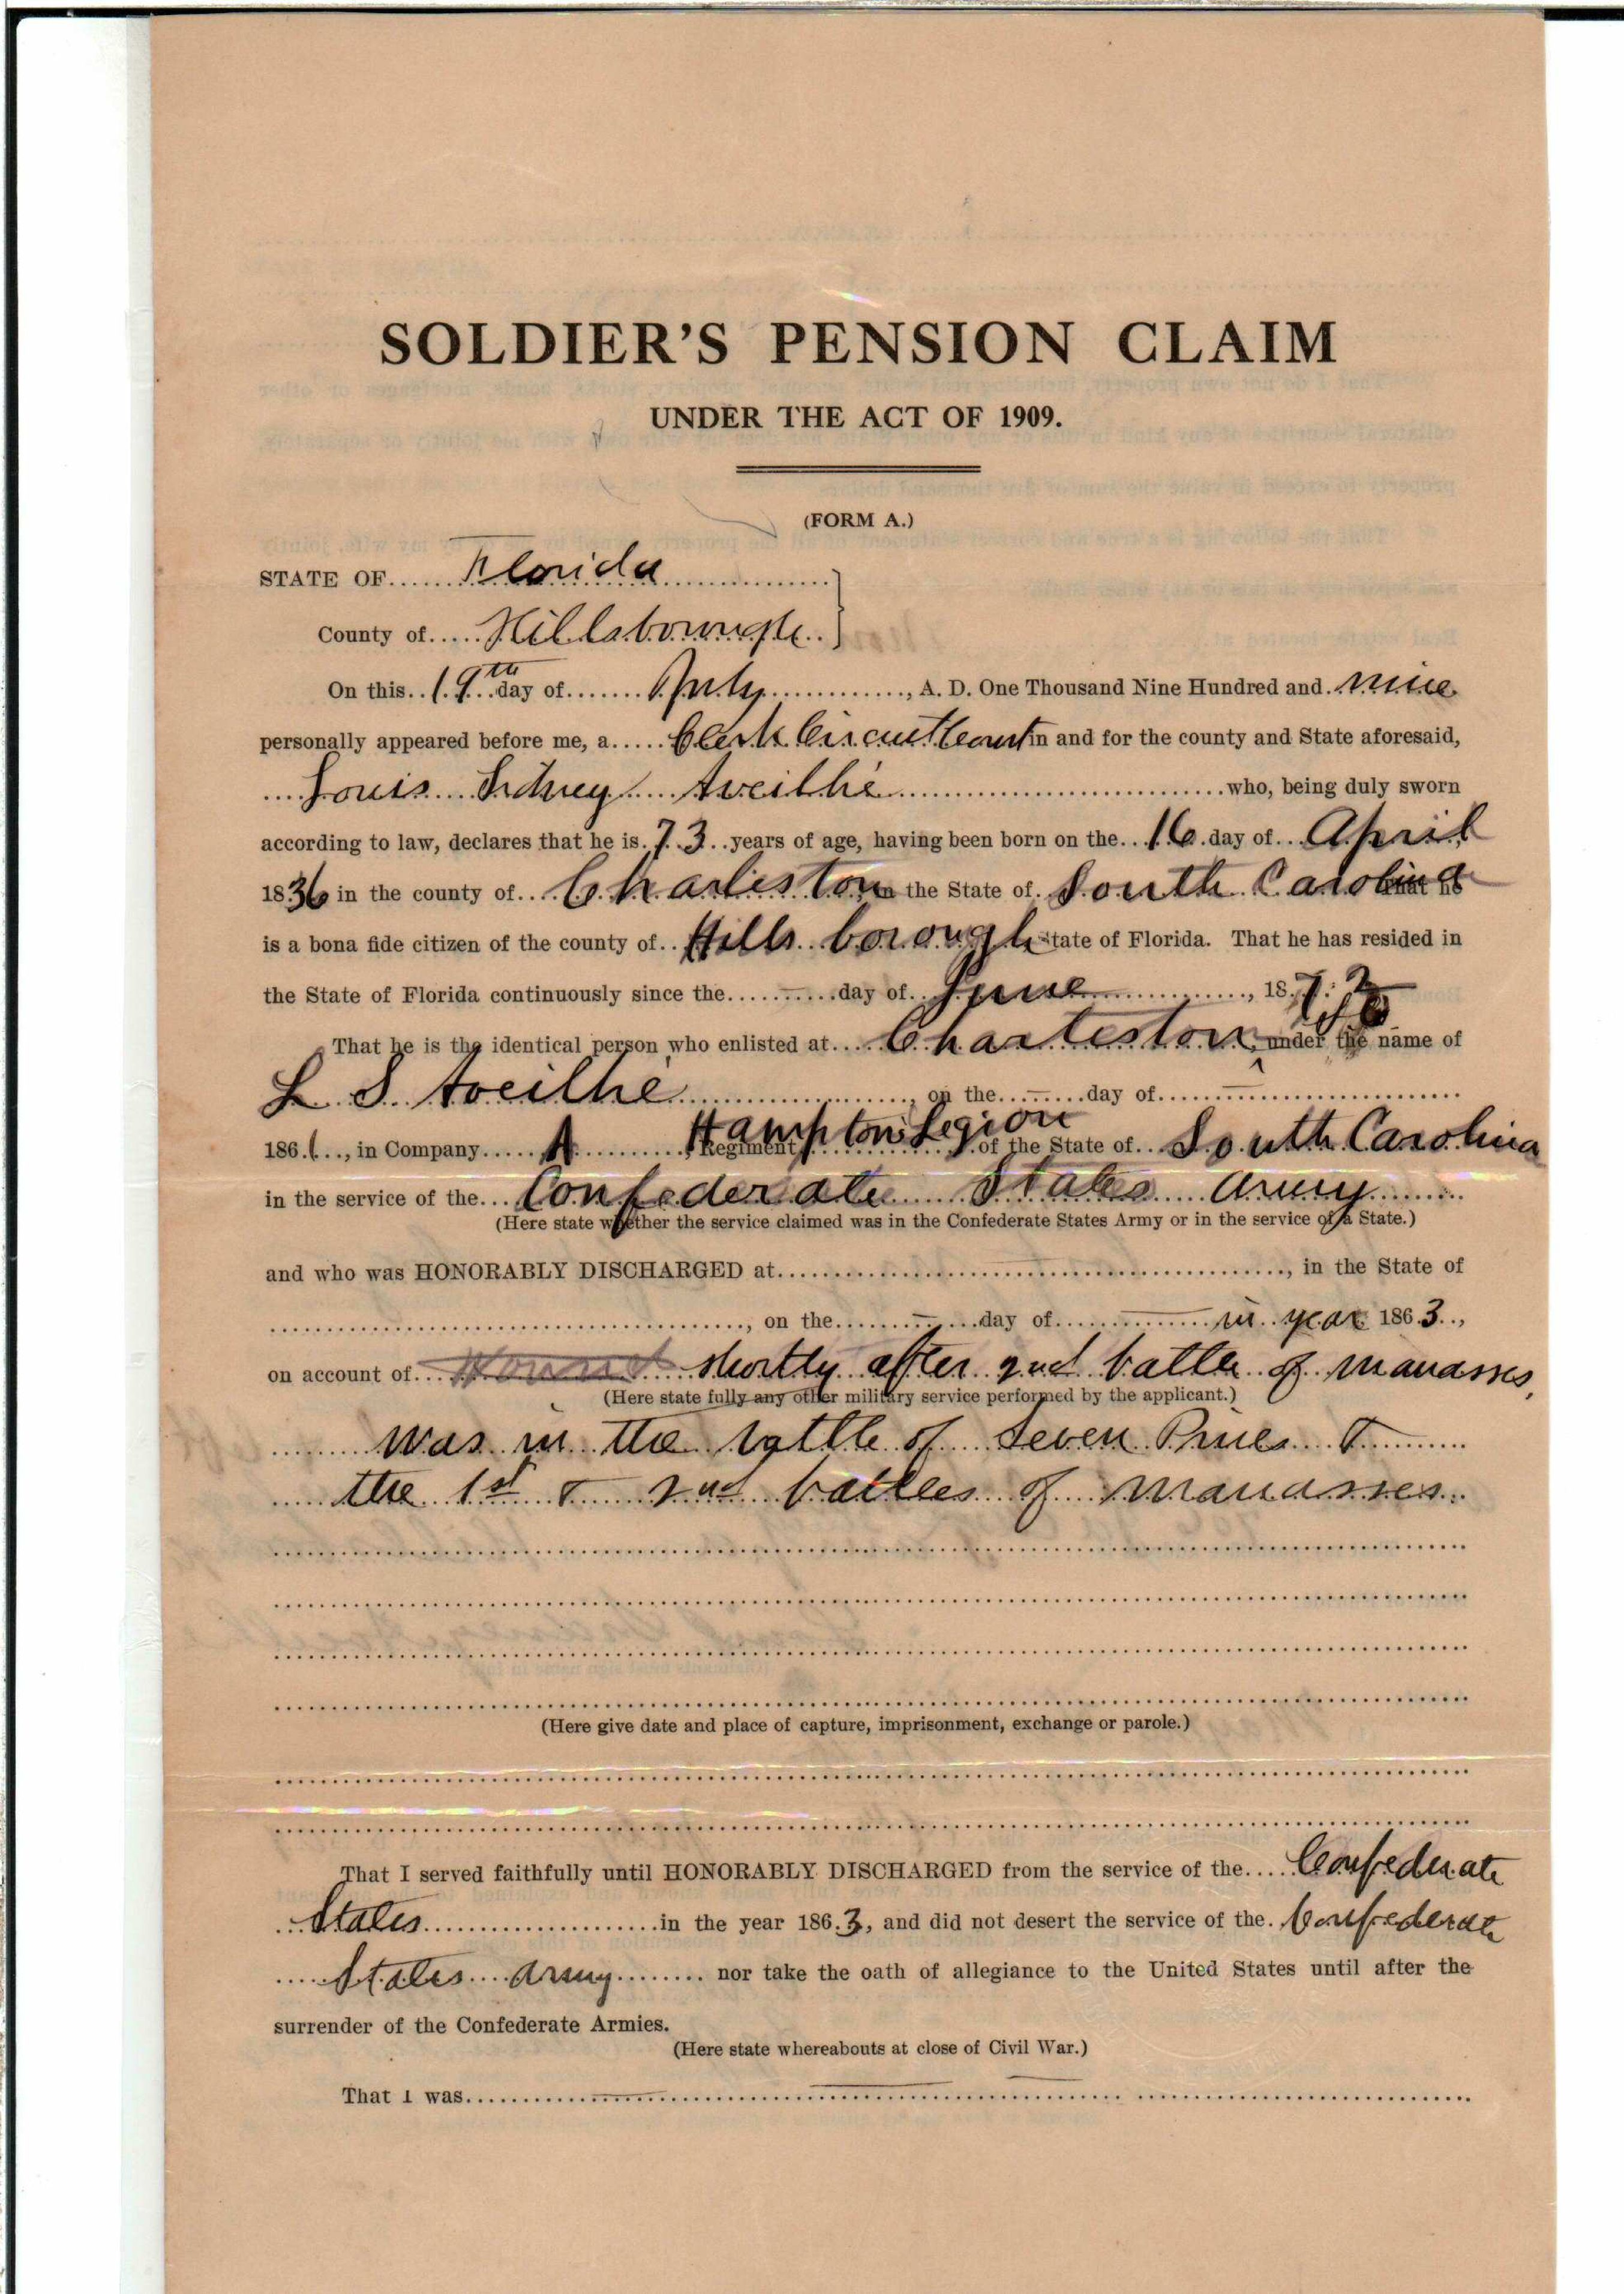 SOLDIER'S PENSION CLAIM
UNDER THE ACT OF 1909.
(FORM A.)
STATE OF Florida
County of Hillsborough
On this 19th day of July, A. D. One Thousand Nine Hundred and nine
personally appeared before me, a Clerk Circuit Court in and for the county and State aforesaid,
Louis Sidney Aveilhé who, being duly sworn
according to law, declares that he is 73 years of age, having been born on the 16 day of April
1836 in the county of Charleston in the State of South Carolina that he
is a bona fide citizen of the county of Hillsborough State of Florida. That he has resided in
the State of Florida continuously since the — day of June, 187
That he is the identical person who enlisted at Charleston, under the name of
L S Aveilhé, on the — day of —
1861, in Company A, Regiment Hampton's Legion of the State of South Carolina
in the service of the Confederate States Army
(Here state whether the service claimed was in the Confederate States Army or in the service of a State.)
and who was HONORABLY DISCHARGED at, in the State of
, on the — day of — in year 1863,
on account of Wound shortly after 2nd battle of Manasses,
(Here state fully any other military service performed by the applicant.)
was in the battle of Seven Pines &
the 1st & 2nd battles of Manasses
(Here give date and place of capture, imprisonment, exchange or parole.)
That I served faithfully until HONORABLY DISCHARGED from the service of the Confederate
States in the year 1863, and did not desert the service of the Confederate
States Army nor take the oath of allegiance to the United States until after the
surrender of the Confederate Armies.
(Here state whereabouts at close of Civil War.)
That I was